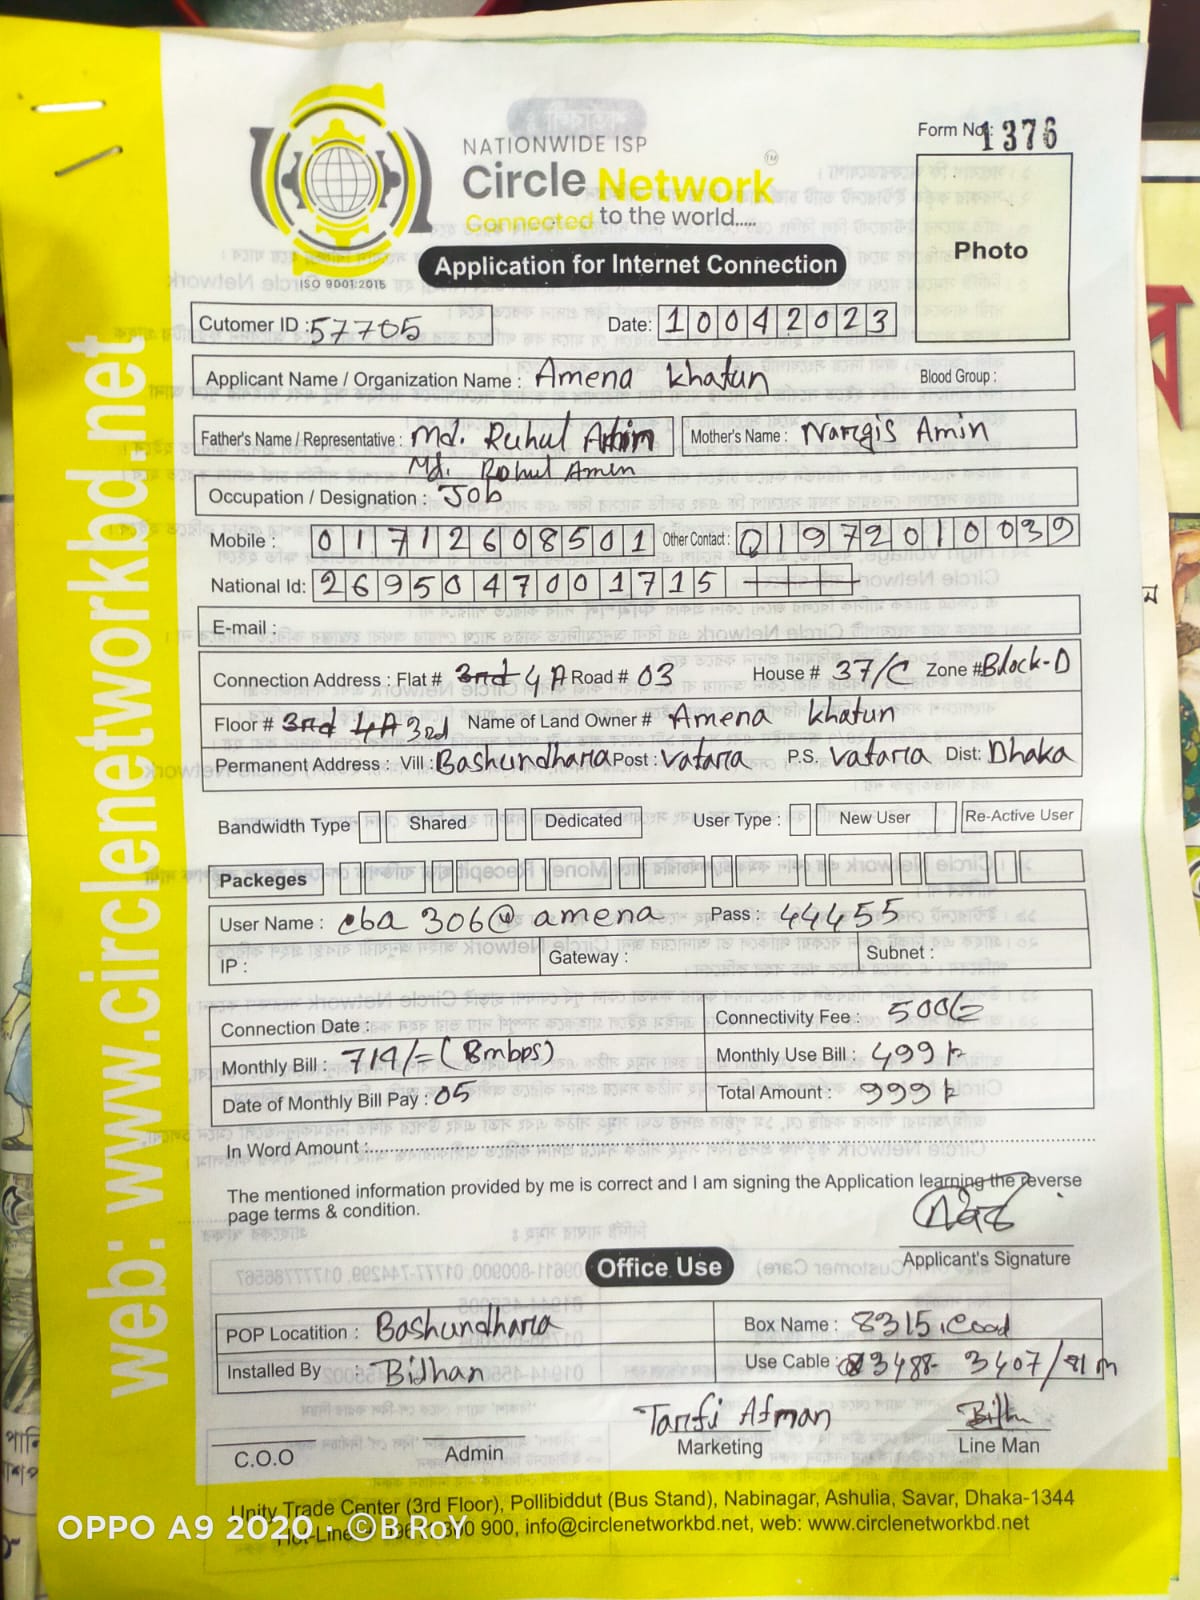 NATIONWIDE ISP
Circle Network TM
Connected to the world.....
ISO 9001:2015
Form No: 1376
Photo
Application for Internet Connection
Cutomer ID : 57705 Date: 10042023
Applicant Name / Organization Name : Amena Khatun Blood Group :
Father's Name / Representative : Md. Ruhul Amin Mother's Name : Nargis Amin
Md. Rohul Amen
Occupation / Designation : Job
Mobile : 01712608501 Other Contact : 01972010039
National Id: 2695047001715
E-mail :
Connection Address : Flat # 3rd 4A Road # 03 House # 37/C Zone # Block-D
Floor # 3rd 4A 3rd Name of Land Owner # Amena Khatun
Permanent Address : Vill : Bashundhara Post : Vatara P.S. Vatara Dist: Dhaka
Bandwidth Type Shared Dedicated User Type : New User Re-Active User
Packeges
User Name : cba 306@amena Pass : 44455
IP : Gateway : Subnet :
Connection Date : Connectivity Fee : 500/=
Monthly Bill : 714/= (8mbps) Monthly Use Bill : 499
Date of Monthly Bill Pay : 05 Total Amount : 999
In Word Amount :
The mentioned information provided by me is correct and I am signing the Application learning the reverse
page terms & condition.
Applicant's Signature
Office Use
POP Locatition : Bashundhara Box Name : 8315
Installed By : Bidhan Use Cable : 3488- 3407/81m
Marketing Line Man
C.O.O Admin
Unity Trade Center (3rd Floor), Pollibiddut (Bus Stand), Nabinagar, Ashulia, Savar, Dhaka-1344
Hot-Line 900, info@circlenetworkbd.net, web: www.circlenetworkbd.net
web: www.circlenetworkbd.net
OPPO A9 2020 · ©B RoY